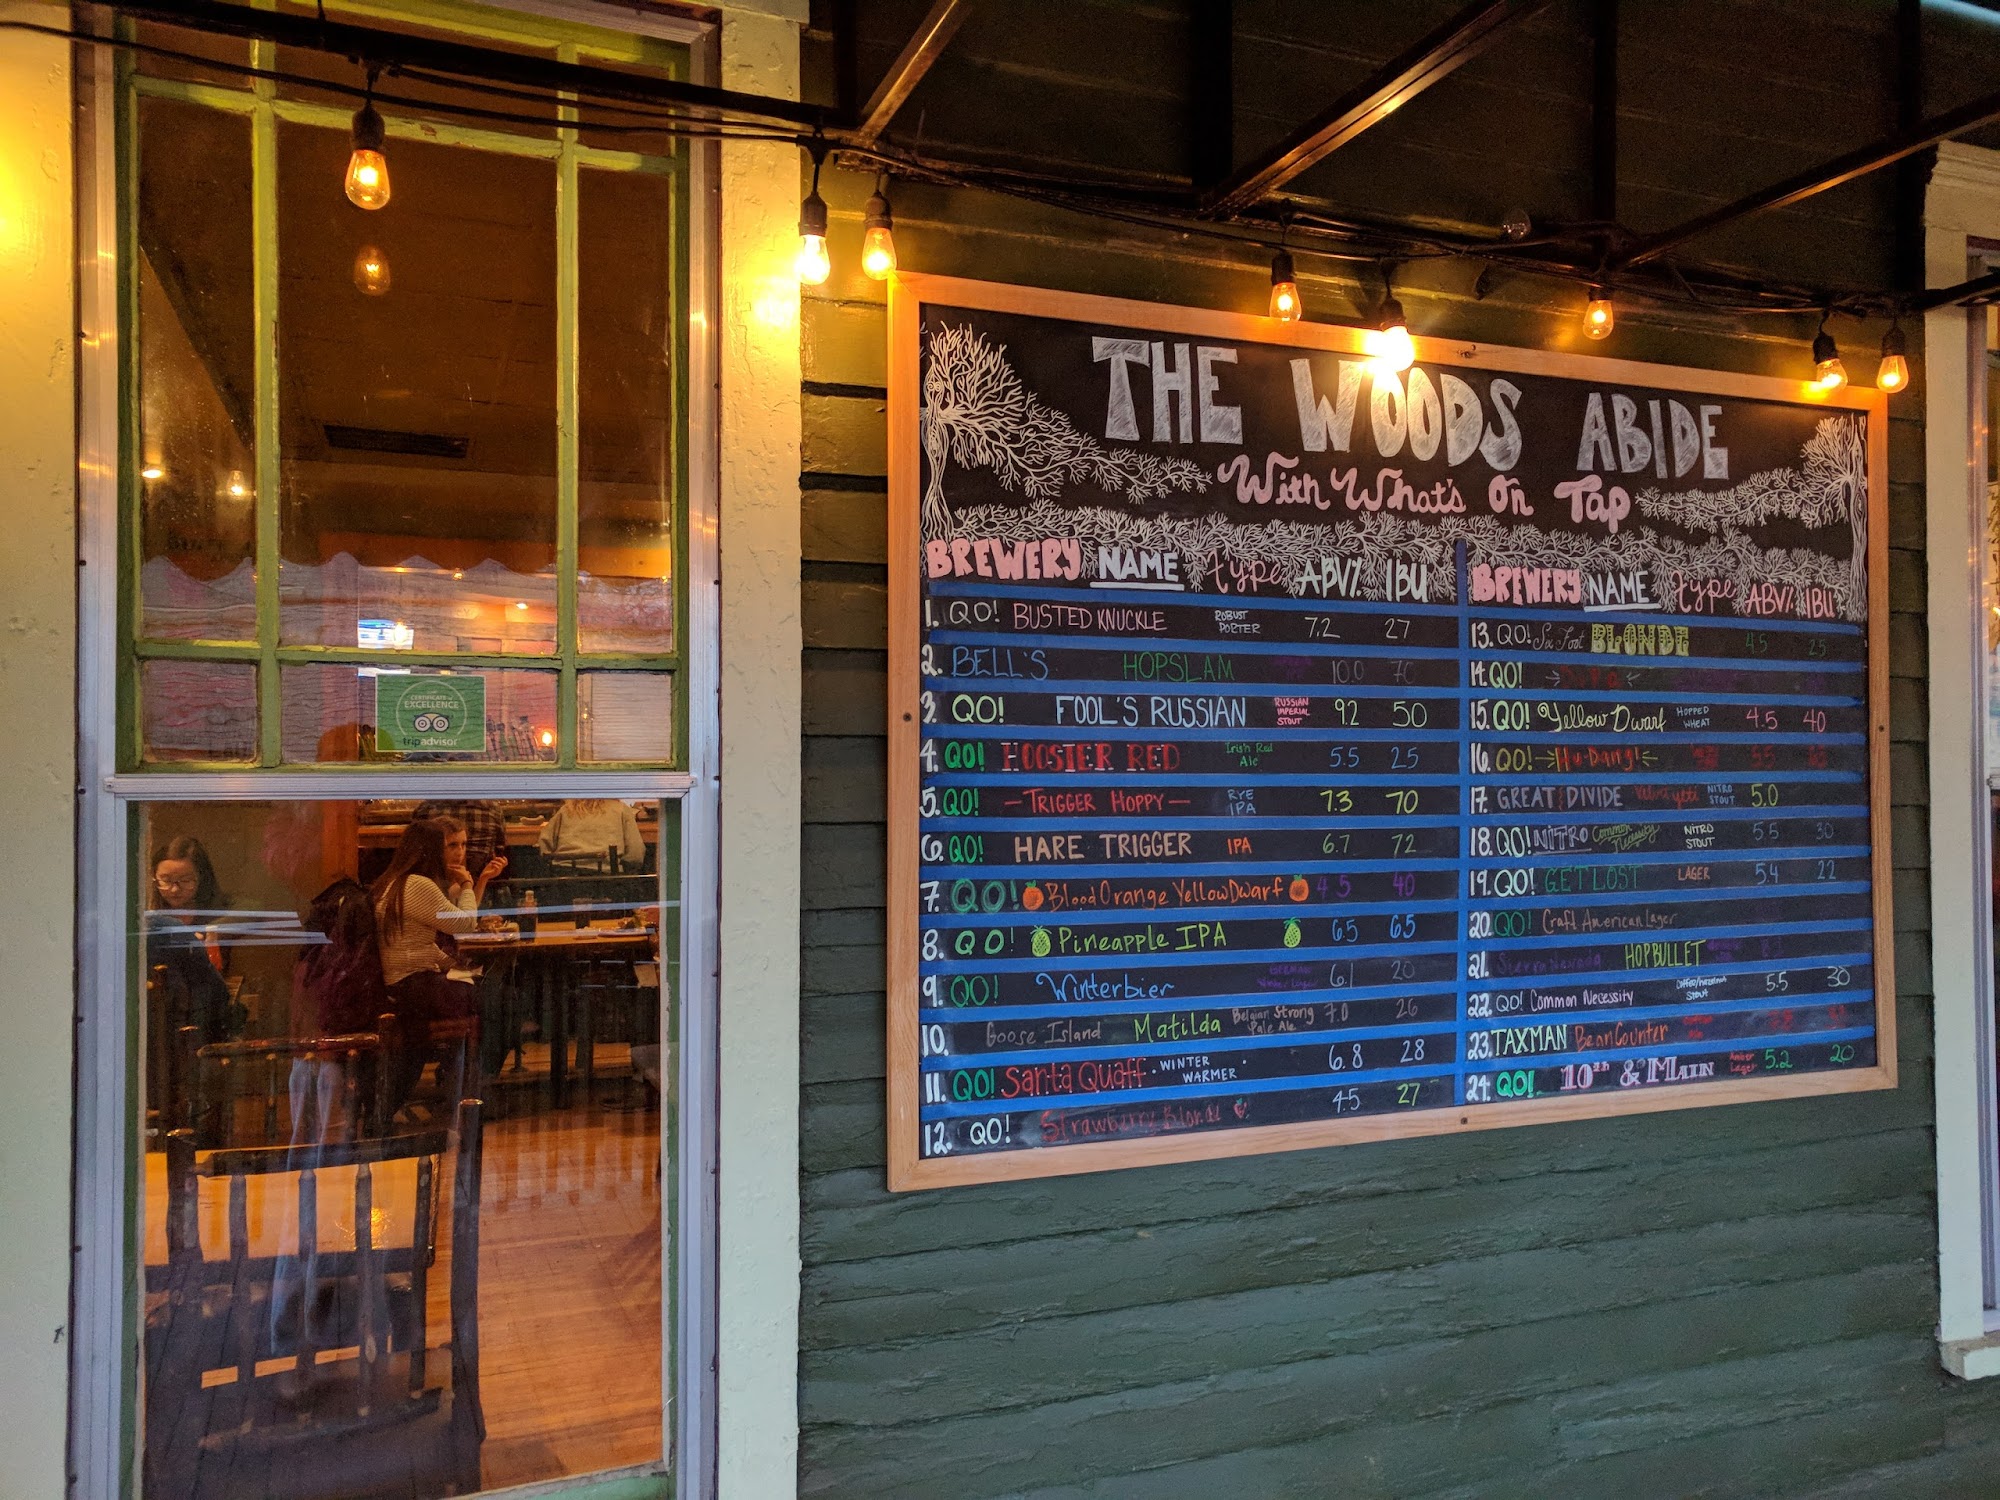 CERTIFICATE of
EXCELLENCE
tripadvisor
THE WOODS ABIDE
With What's On Tap
BREWERY NAME type ABV% IBU
1. QO! BUSTED KNUCKLE ROBUST PORTER 7.2 27
2. BELL'S HOPSLAM 10.0 70
3. QO! FOOL'S RUSSIAN RUSSIAN IMPERIAL STOUT 9.2 50
4. QO! HOOSIER RED Irish Red Ale 5.5 25
5. QO! -TRIGGER HOPPY- RYE IPA 7.3 70
6. QO! HARE TRIGGER IPA 6.7 72
7. QO! Blood Orange Yellow Dwarf 4.5 40
8. QO! Pineapple IPA 65 65
9. QO! Winterbier 6.1 20
10. Goose Island Matilda Belgian Strong Pale Ale 7.0 26
11. QO! Santa Quaff · WINTER WARMER · 6.8 28
12. QO! Strawberry Blonde 4.5 27
BREWERY NAME type ABV% IBU
13. QO! Six Foot BLONDE 4.5 25
14. QO!
15. QO! Yellow Dwarf HOPPED WHEAT 4.5 40
16. QO! Hu-Dang! 5.5
17. GREAT DIVIDE Velvet yeti NITRO STOUT 5.0
18. QO! NITRO Common Necessity NITRO STOUT 5.5 30
19. QO! GET LOST LAGER 5.4 22
20. QO! Craft American Lager
21. Sierra Nevada HOPBULLET
22. QO! Common Necessity Coffee/hazelnut STOUT 5.5 30
23. TAXMAN Bean Counter
24. QO! 10th & MAIN Amber Lager 5.2 20